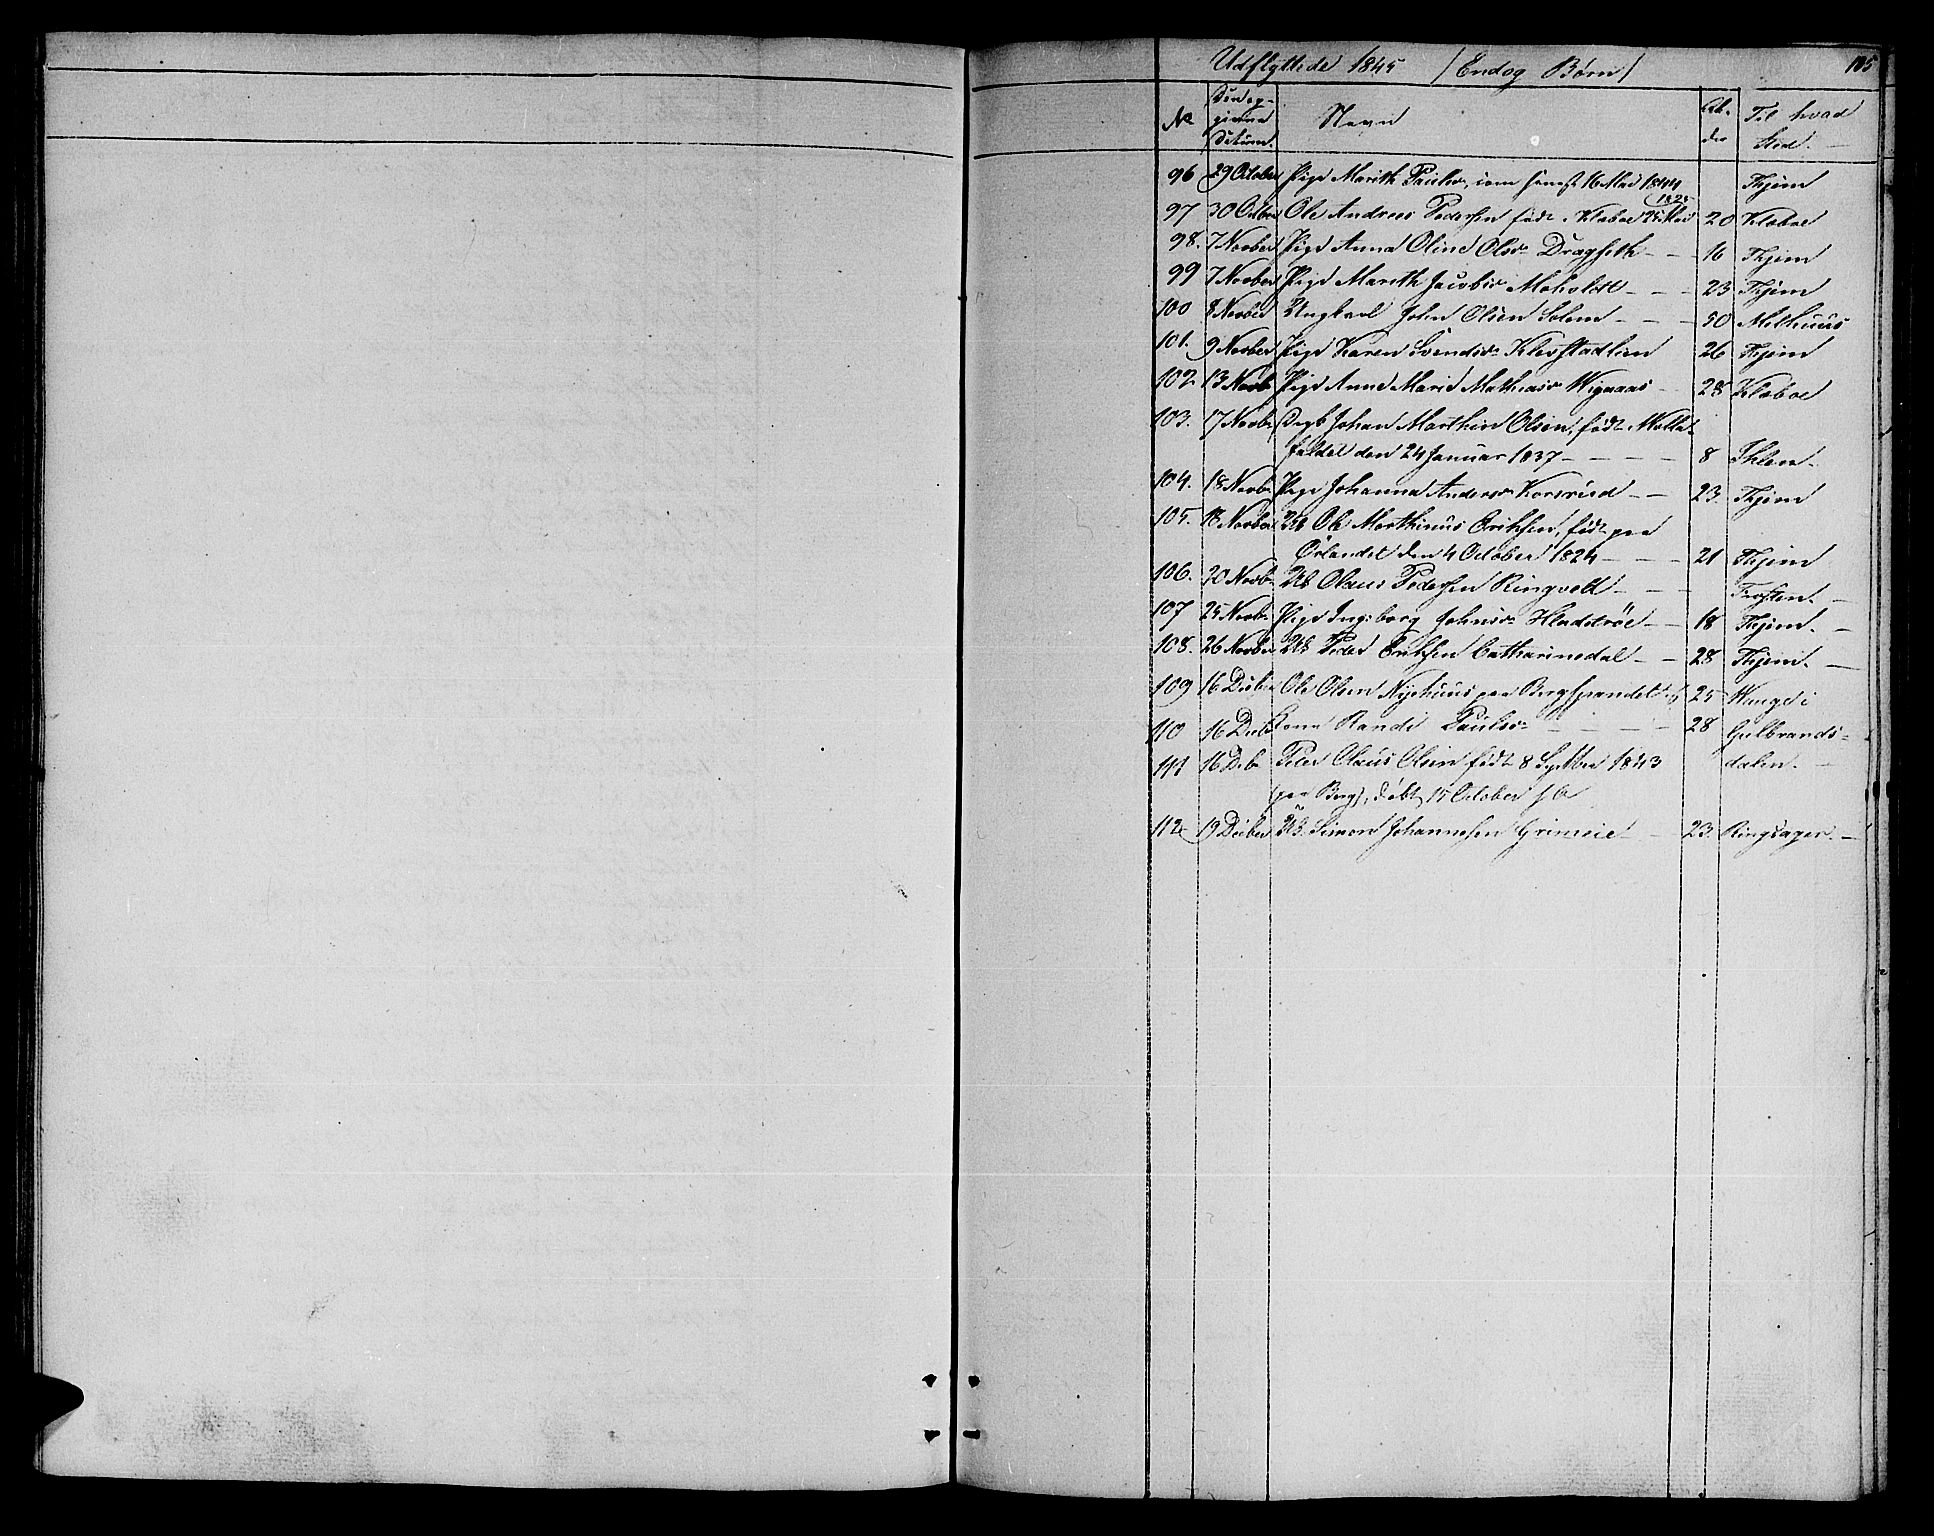 Udflyttede 1845 /Endog Børn/ 105
No Den op- givne Datum. Navn Al- der Til hvad Sted.
96 29 October Pige Marith Paulsd. 16 Mai 1844 Thjem
1825
97 30 Octber Ole Andreas Pedersen født i Klæboe 25 Mai 20 Klæboe
98. 7 Novber Pige Anna Oline Olsdr Dragseth 16 Thjem
99 7 Novber Pige Marith Jacobsdr Moholdt 23 Thjem
100 8 Novber Ungkarl John Olsen Solem 50 Melhuus
101. 9 Novber Pige Karen Svendsdr Klevstadlien 26 Thjem
102 13 Novb Pige Anne Marie Mathiasdr Wignaas 28 Klæboe
103. 17 Novbr Johan Marthin Olsen, født
den 24 Januar 1837 8 Ihlen.
104. 18 Novbr Pige Johanna Andersdr Korsrud 23 Thjem
105. 18 Novber Ole Marthinus Eriksen, født paa
Ørlandet den 4 October 1824 21 Thjem
106. 20 Novbr Olaus Pedersen Ringvold Frosten.
107 25 Novbr Pige Ingeborg Johnsdr Hladerøe 18 Thjem.
108. 26 Novber Peder Eriksen Catharinedal 28 Thjem.
109 16 Decber Ole Olsen Nyehuus paa 25 i
110 16 Decb Kone Randi Paulsdr 28 Gulbrands-
111 16 Decb Peter Olaus Olsen født 8 Septber 1843 dalen.
(paa Berg), døbt 15 October
112 19 Decber Simon Johannesen Grimeie 23 Ringsager.